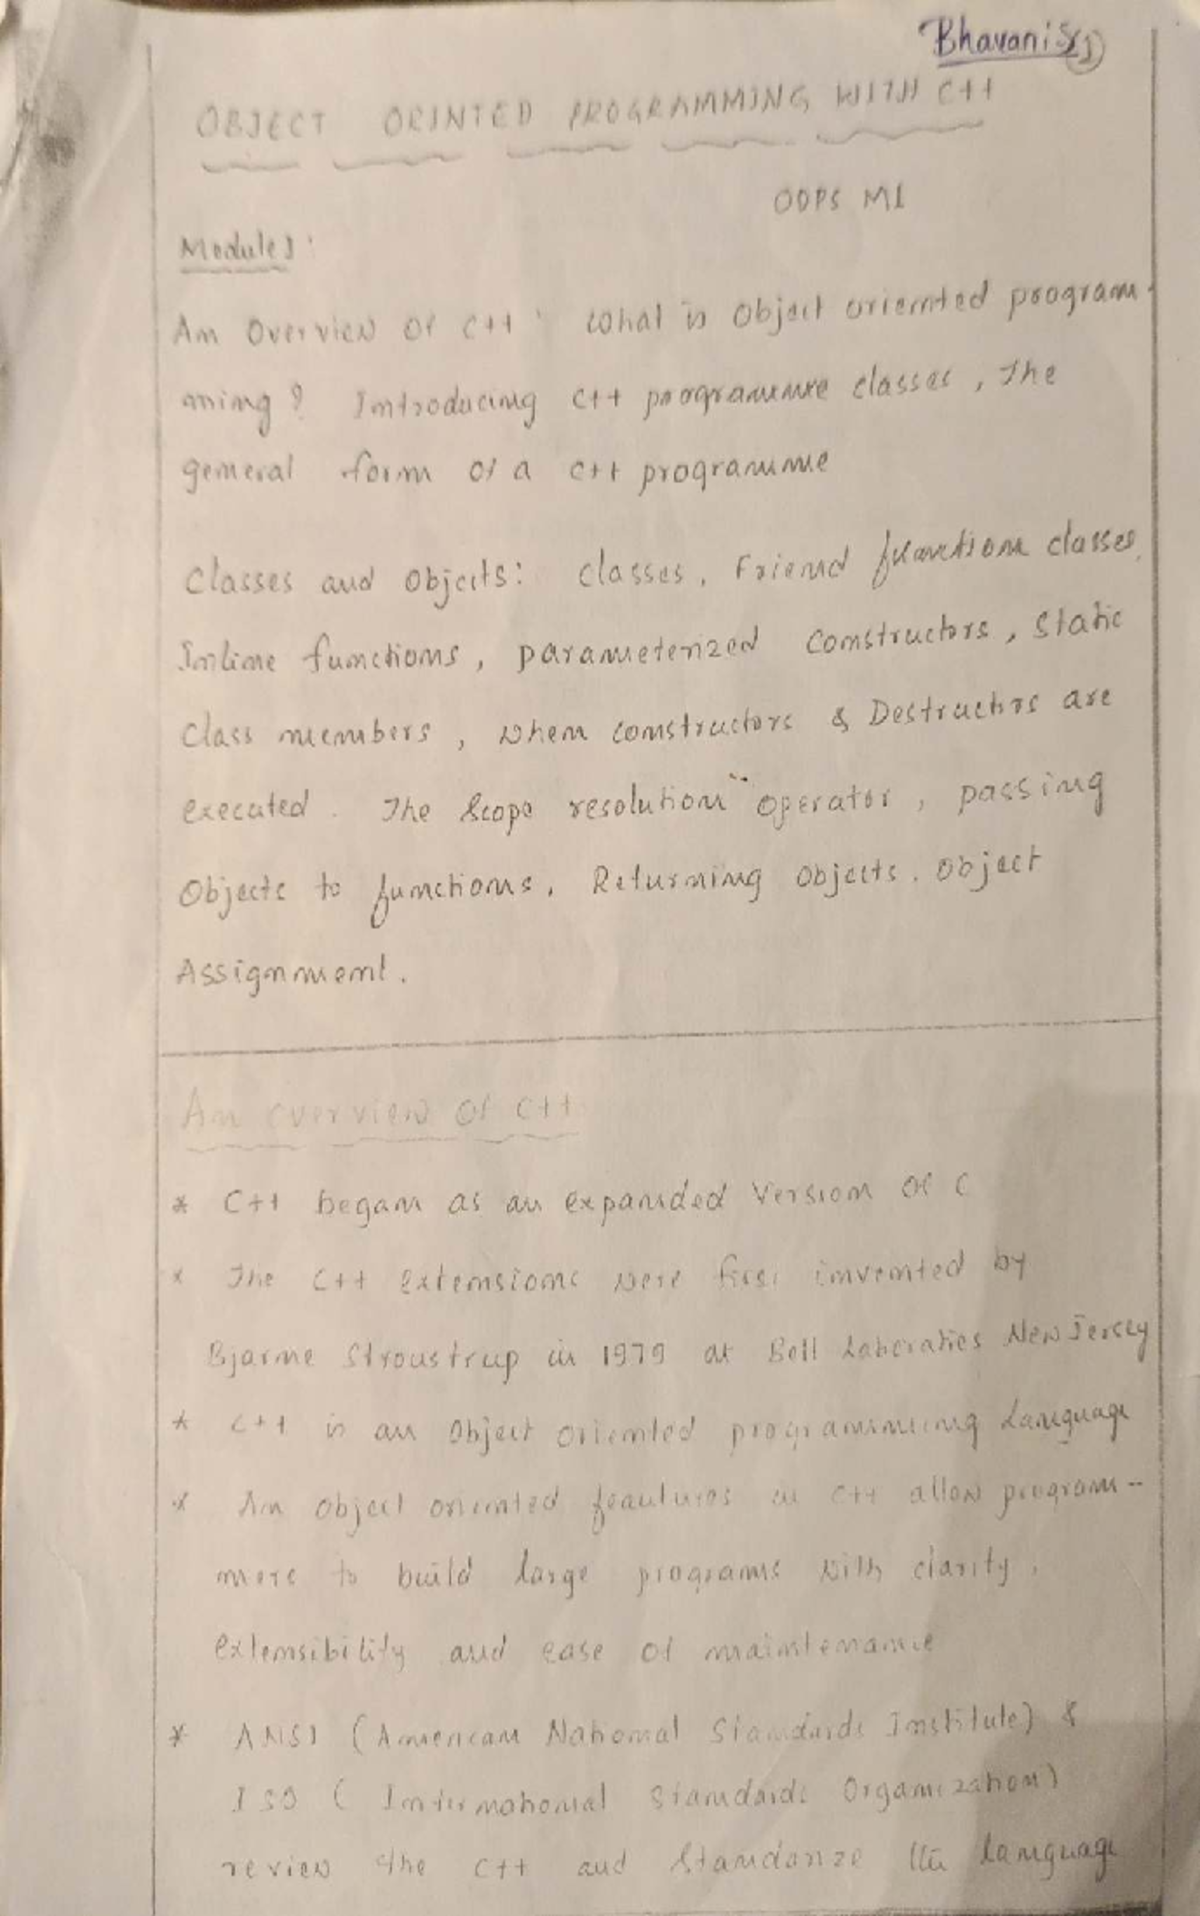 Bhavani S
1
OBJECT ORINTED PROGRAMMING WITH C++
OOPS M1
Module 1:
An Overview of C++: What is Object oriented program-
ming? Introducing C++ programme classes, The
general form of a C++ programme
Classes and Objects: Classes, Friend function classes,
Inline functions, parameterized constructors, static
class members, when constructors & Destructors are
executed. The Scope resolution operator, passing
Objects to functions, Returning objects. Object
Assignment.
An overview of C++
* C++ began as an expanded version of C
* The C++ extensions were first invented by
Bjarne Stroustrup in 1979 at Bell Laboraties New Jersey
* C++ is an Object oriented programming Language
* An object oriented feautures in C++ allow program--
mers to build large programs with clarity,
extensibility and ease of maintenance
* ANSI (American National Standards Institute) &
ISO (International Standards Organization)
review the C++ and Standarize the language